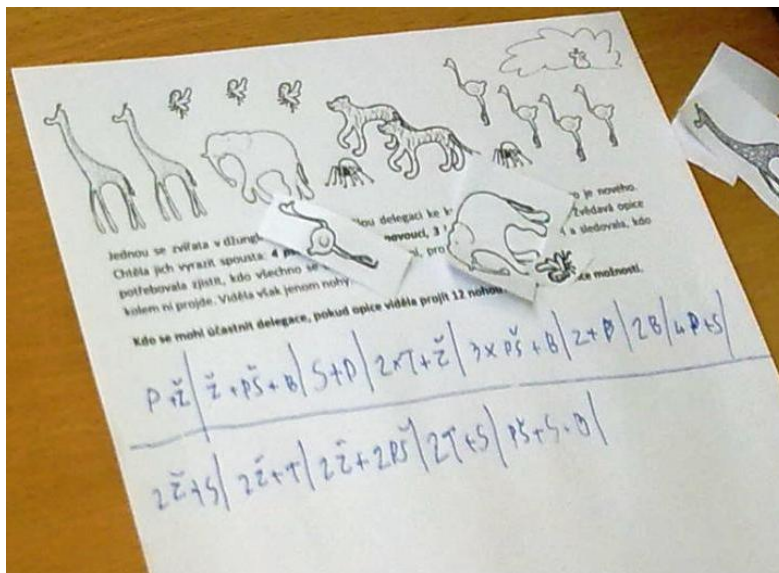 Jednou se zvířata v džungl lou delegaci ke k o je nového.
Chtěla jich vyrazit spousta: 4 p avoucí, 3 Zvědavá opice
potřebovala zjistit, kdo všechno se pro a sledovala, kdo
kolem ní projde. Viděla však jenom nohy. ce možností.
Kdo se mohl účastnit delegace, pokud opice viděla projít 12 nohou
P+Ž | Ž+PŠ+B | S+P | 2×T+Ž | 3×PŠ+B | Z+P | 2B | 4P+S |
2Ž+S | 2Ž+T | 2Ž+2PŠ | 2T+S | PŠ+S+B |